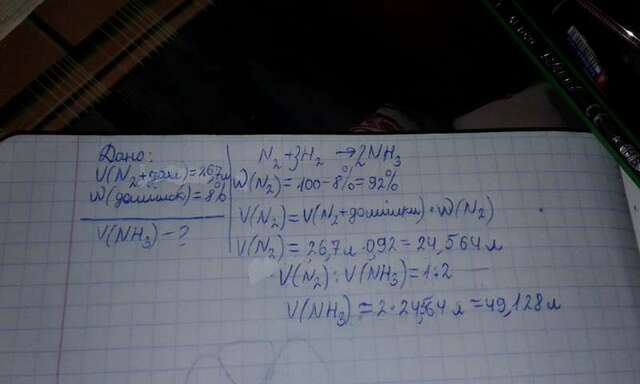 Дано:
V(N₂+дом) = 26,7 л
W(домішок) = 8%
V(NH₃) - ?
N₂ + 3H₂ → 2NH₃
W(N₂) = 100 - 8% = 92%
V(N₂) = V(N₂ + домішки) · W(N₂)
V(N₂) = 26,7 л · 0,92 = 24,564 л
V(N₂) : V(NH₃) = 1:2
V(NH₃) = 2 · 24,564 л = 49,128 л